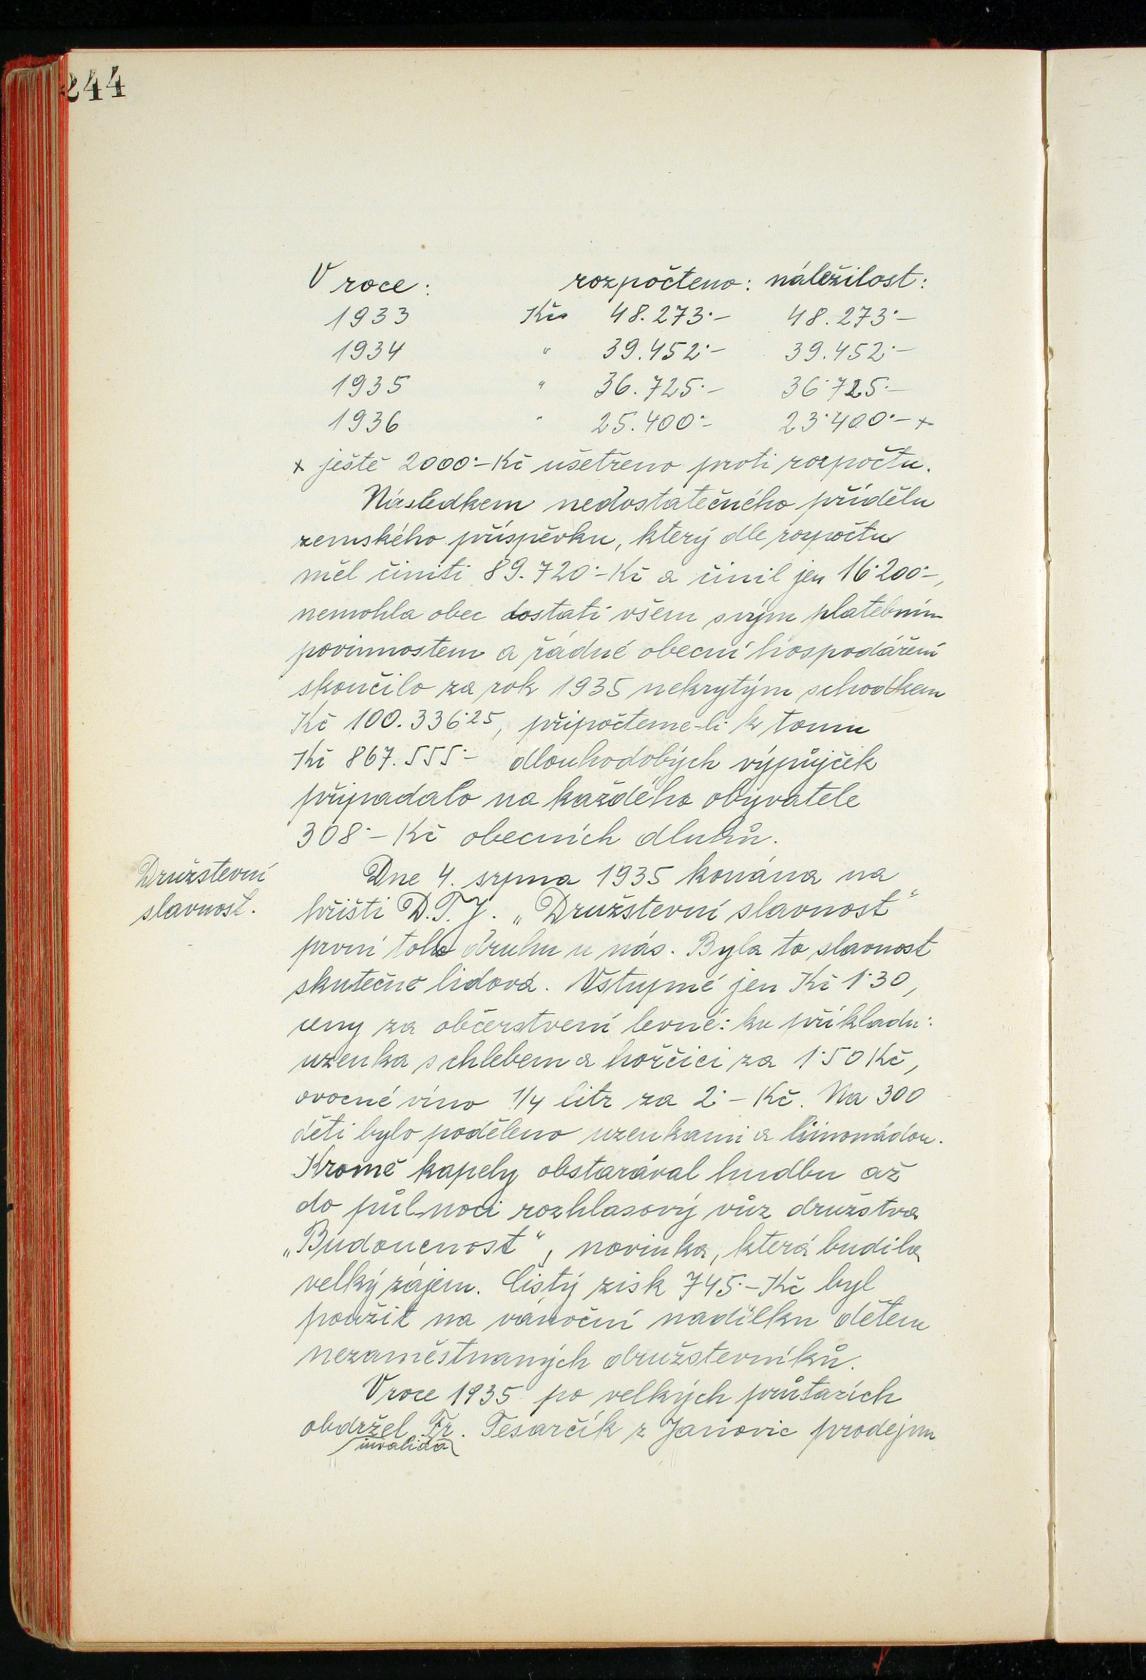 244
V roce: rozpočteno: náležitost:
1933 Kč 48.273·- 48.273·-
1934 " 39.452·- 39.452·-
1935 " 36.725·- 36·725·-
1936 " 25.400·- 23·400·- +
+ ještě 2000·- Kč ušetřeno proti rozpočtu.
Následkem nedostatečného přídělu
zemského příspěvku, který dle rozpočtu
měl činiti 89.720·- Kč a činil jen 16·200·-,
nemohla obec dostati všem svým platebním
povinnostem a řádné obecní hospodáření
skončilo za rok 1935 nekrytým schodkem
Kč 100.336·25, připočteme-li k tomu
Kč 867.555·- dlouhodobých výpůjček
připadalo na každého obyvatele
308·- Kč obecních dluhů.
Družstevní
slavnost.
Dne 4. srpna 1935 konána na
hřišti D.T.J. „Družstevní slavnost"
první toho druhu u nás. Byla to slavnost
skutečně lidová. Vstupné jen Kč 1·30,
ceny za občerstvení levné: ku příkladu:
uzenka s chlebem a hořčicí za 1·50 Kč,
ovocné víno 1/4 litr za 2·- Kč. Na 300
dětí bylo poděleno uzenkami a limonádou.
Kromě kapely obstarával hudbu až
do půlnoci rozhlasový vůz družstva
„Budoucnost", novinka, která budila
velký zájem. Čistý zisk 745·- Kč byl
použit na vánoční nadílku dětem
nezaměstnaných družstevníků.
V roce 1935 po velkých průtazích
obdržel Fr. Tesarčík z Janovic prodejnu
invalida